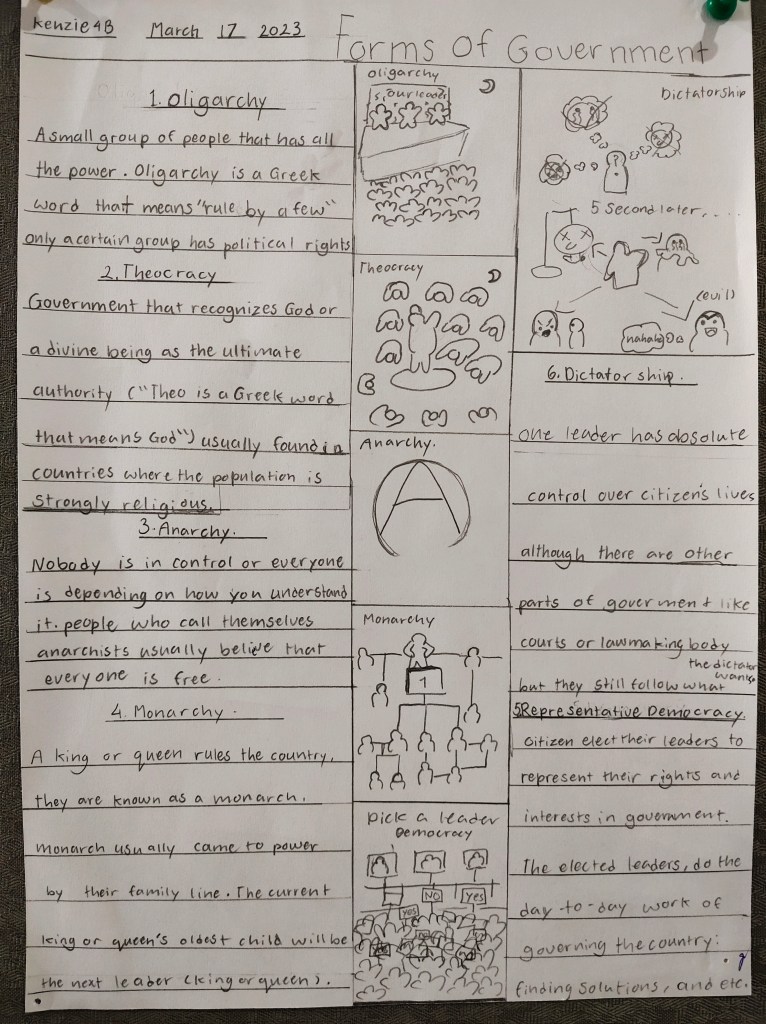 Kenzie 4B March 17 2023
Forms Of Government
1. Oligarchy
A small group of people that has all
the power. Oligarchy is a Greek
word that means "rule by a few"
only a certain group has political rights
2. Theocracy
Government that recognizes God or
a divine being as the ultimate
authority ("Theo is a Greek word
that means God") usually found in
countries where the population is
strongly religious.
3. Anarchy.
Nobody is in control or everyone
is depending on how you understand
it. people who call themselves
anarchists usually believe that
everyone is free.
4. Monarchy.
A king or queen rules the country,
they are known as a monarch.
monarch usually came to power
by their family line. The current
king or queen's oldest child will be
the next leader (king or queen).
Oligarchy
our leader
Theocracy
Anarchy.
A
Monarchy
1
Pick a leader
Democracy
NO
Yes
Yes
Dictatorship
?
5 Second later,....
(evil)
6. Dictatorship.
one leader has absolute
control over citizen's lives
although there are other
parts of government like
courts or lawmaking body
but they still follow what the dictator wants
5. Representative Democracy.
citizen elect their leaders to
represent their rights and
interests in government.
The elected leaders, do the
day-to-day work of
governing the country:
finding solutions, and etc.